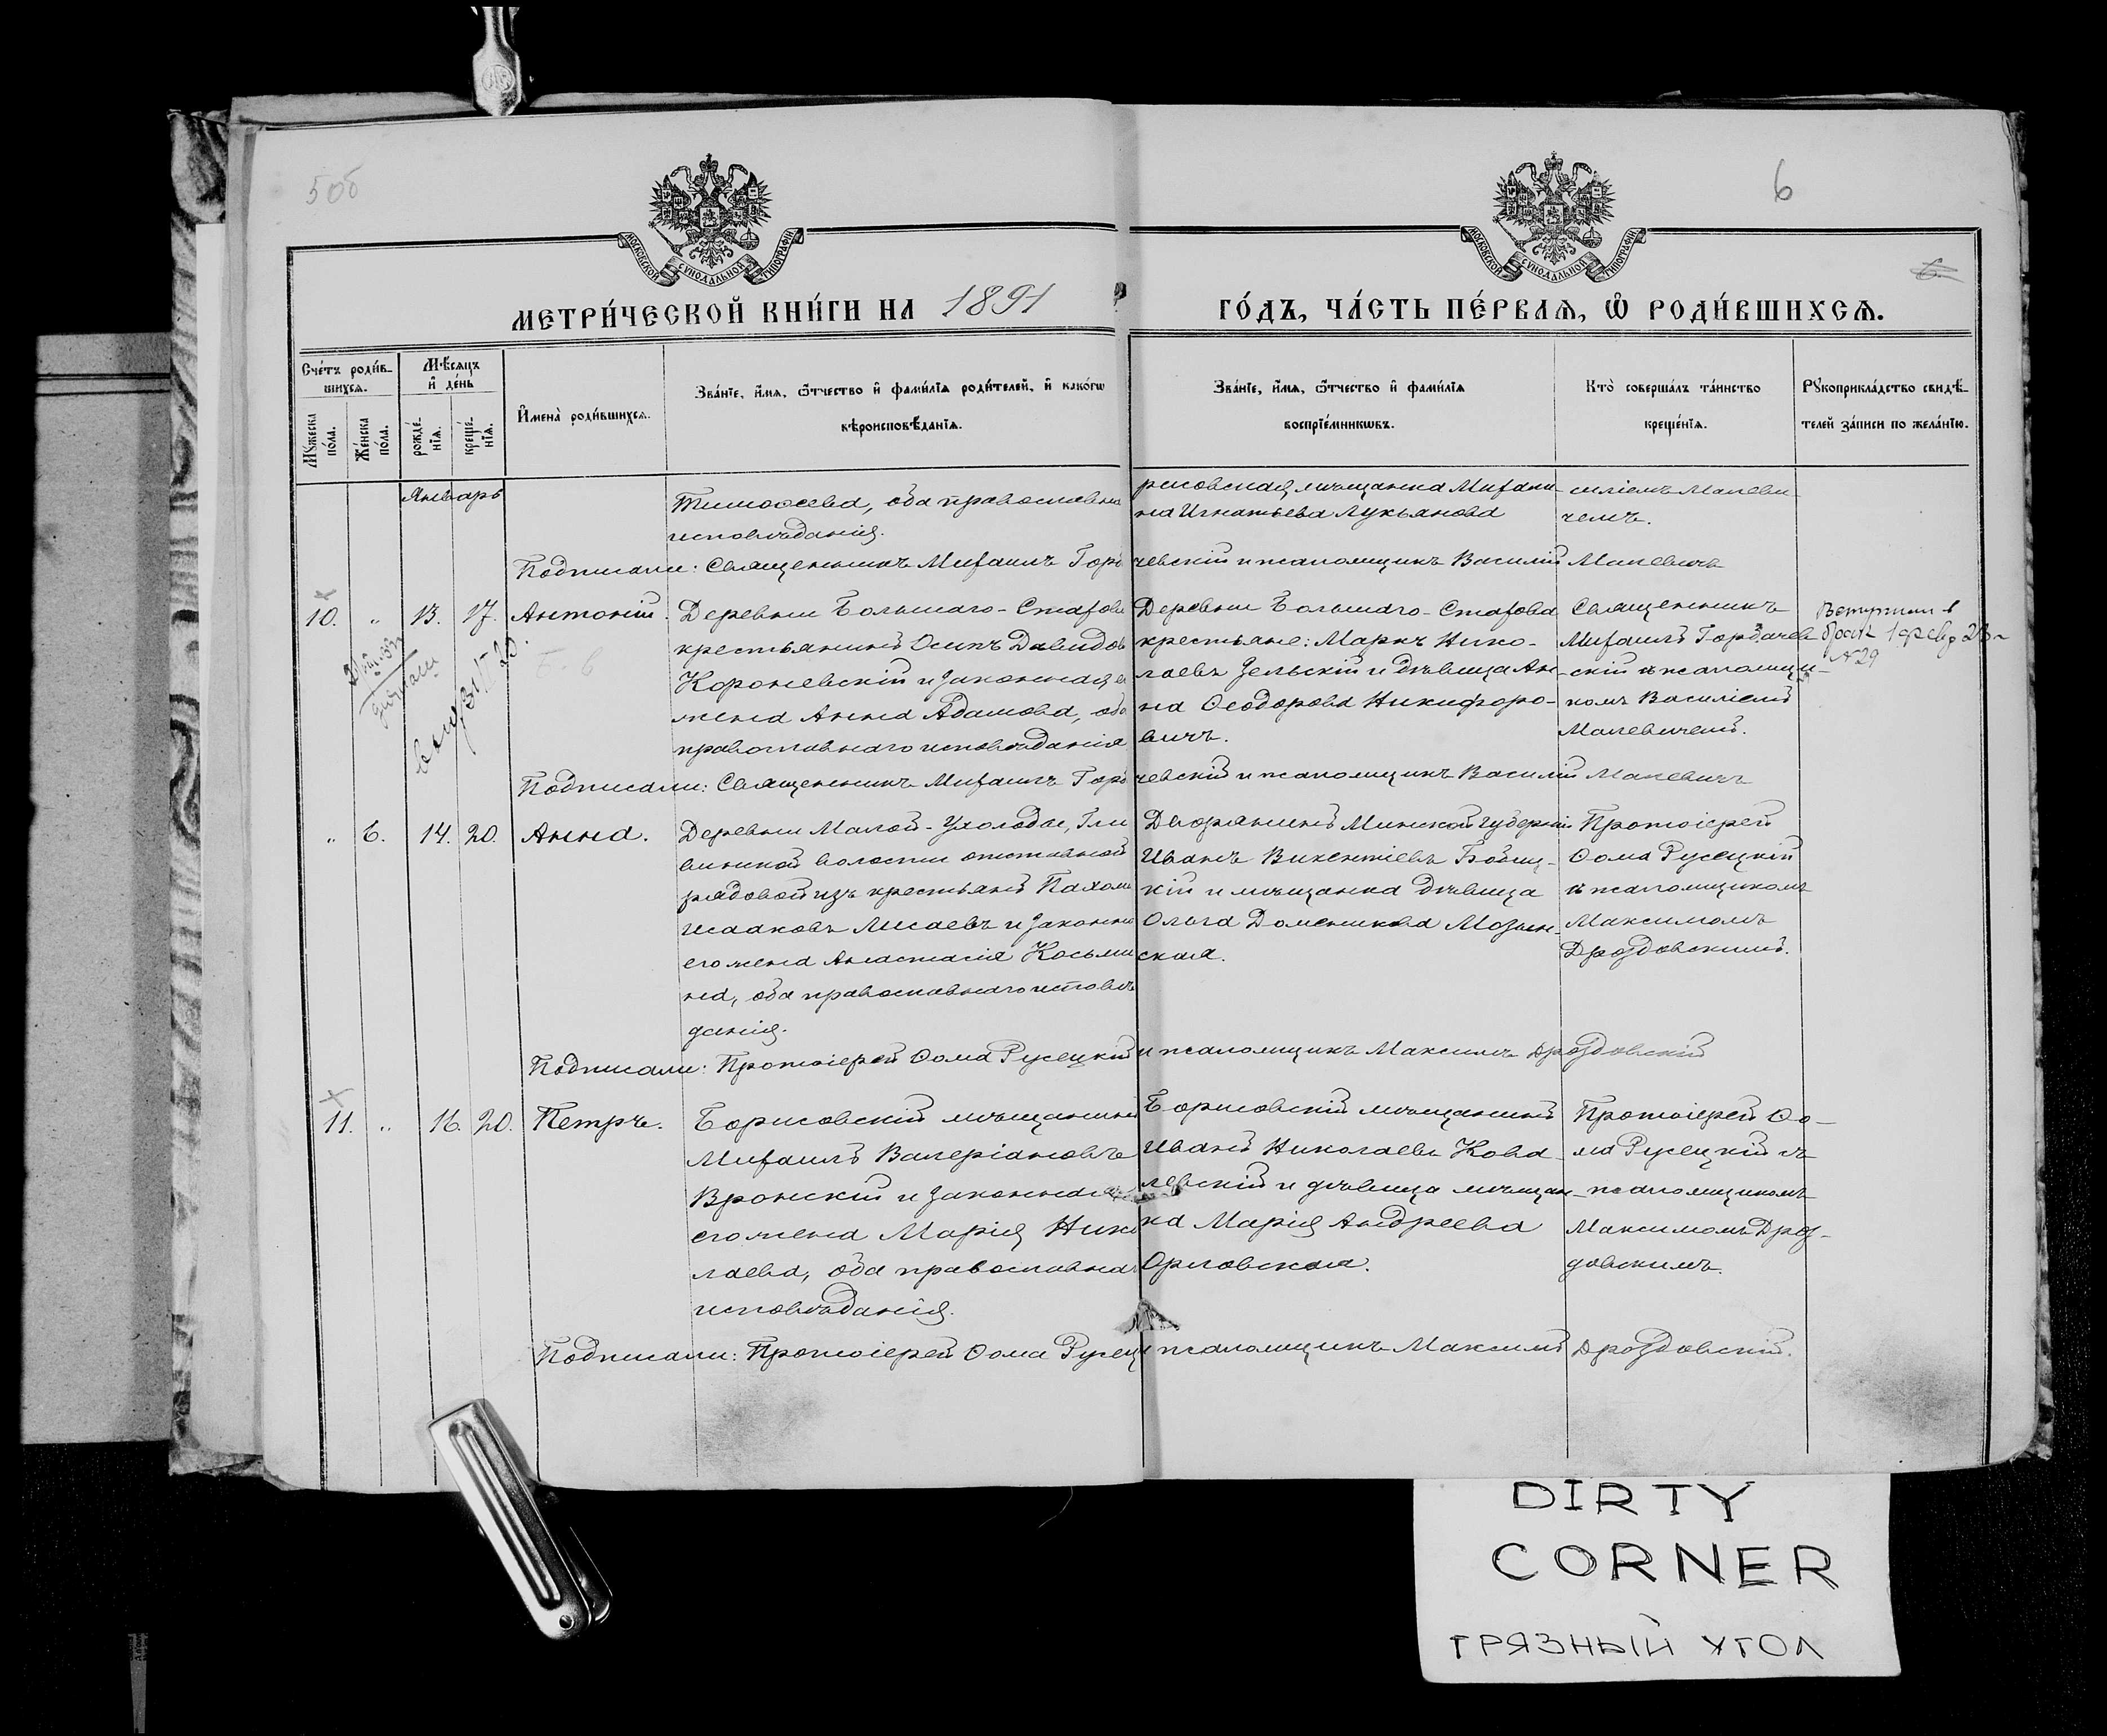 5об
6
6.
МОСКОВСКОЙ СУНОДАЛЬНОЙ ТИПОГРАФІИ
МОСКОВСКОЙ СУНОДАЛЬНОЙ ТИПОГРАФІИ
МЕТРИ́ЧЕСКОЙ КНИ́ГИ НА 1891 ГО́ДЪ, ЧА́СТЬ ПЕ́РВАѦ, Ѽ РОДИ́ВШИХСѦ.
Сче́тъ роди́в-
шихсѧ.
Мѣ́сѧцъ
и҆ де́нь
Мꙋ́жеска
по́ла.
Же́нска
по́ла.
рожде́-
нїѧ.
креще́-
нїѧ.
И҆мена̀ роди́вшихсѧ.
Зва́нїе, и҆́мѧ, ѻ҆́тчество и҆ фами́лїѧ роди́телей, и҆ како́гѡ
вѣроисповѣ́данїѧ.
Зва́нїе, и҆́мѧ, ѻ҆́тчество и҆ фами́лїѧ
воспрїе́мникѡвъ.
Кто̀ соверша́лъ та́инство
креще́нїѧ.
Рꙋкоприкла́дство свидѣ́-
телей за́писи по жела́нїю.
Январь
Тимоѳеева, оба православна
исповѣданія.
рисовская мѣщанка Михали-
на Игнатьева Лукьянова
силіемъ Малеви-
чемъ.
Подписали: Священникъ Михаилъ Горба
чевскій и псаломщикъ Василій Малевичъ
10.
"
13.
17.
Антоній.
Деревни Большаго-Стахова
крестьянинъ Осипъ Давидов
Короневскій и законная е
жена Анна Адамова, оба
православнаго исповѣданія
Деревни Большаго-Стахова
крестьяне: Маркъ Нико-
лаевъ Зельскій и дѣвица Ан-
на Ѳеодорова Никифоро-
вичъ.
Священникъ
Михаилъ Горбачев-
скій съ псаломщи-
комъ Василіемъ
Малевичемъ.
Вступил в
брак 1 февр 23 г
№ 29
Подписали: Священникъ Михаилъ Горба
чевскій и псаломщикъ Василій Малевичъ
"
6.
14.
20.
Анна.
Деревни Малой-Ухолоды, Гли
винской волости отставной
рядовой изъ крестьянъ Пахом
Исааковъ Лисаевъ и законна
его жена Анастасія Косьми
на, оба православнаго исповѣ
данія.
Дворянинъ Минской губерніи
Иванъ Викентіевъ
кій и мѣщанка дѣвица
Ольга Доменикова Мозын-
ская.
Протоіерей
Ѳома Русецкій
съ псаломщикомъ
Максимомъ
Дроздовскимъ.
Подписали: Протоіерей Ѳома Русецкій
и псаломщикъ Максимъ Дроздовскій
11.
"
16.
20.
Петръ.
Борисовскій мѣщанинъ
Михаилъ Валеріановъ
Вронскій и законная
его жена Марія Нико
лаева, оба православна
исповѣданія.
Борисовскій мѣщанинъ
Иванъ Николаевъ Кова-
левскій и дѣвица мѣщан-
ка Марія Андреева
Орловская.
Протоіерей Ѳо-
ма Русецкій съ
псаломщикомъ
Максимомъ Дроз-
довскимъ.
Подписали: Протоіерей Ѳома Русец
и псаломщикъ Максимъ Дроздовскій.
DIRTY
CORNER
ГРЯЗНЫЙ УГОЛ